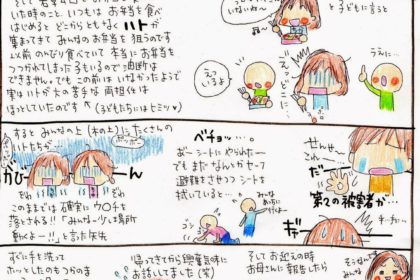 した時のこと、いつもはお弁当を食べ
はじめると どこからともなく ハトが
集まってきて みんなのお弁当を狙うのです
以前 のんびり食べていて 本当にお弁当を
つつかれてしまった子もいるので 油断は
できません。でも この前は いなかったようで
実はハトが大の苦手な両担任は
ほっとしていたのです
(子どもたちにはヒミツ♥)
いないね〜
と子どもに言うと
えっ
いるよ
えっどこに
うえに…
すると みんなの上(木の上)にたくさんの
ハトたちが
ポッポー
がびーーん
ぞわ
ぞわ
このままでは 確実に ウ〇チを
落とされる!!「みんな〜少し場所
動くよー!!」と言った矢先
ベチョッ…。
おーシートにやられた…
でもまだなんとかセーフ
避難をさせつつ シートを
拭いていると…
みんな
あっちに
行くよー
ゴシ
ゴシ
せんせー
これ…
だぁーー
第2の被害者が…
ずに手を洗って
ホッとしたものもつかのま
帰ってきてから 興奮気味に
お話してました(笑)
そして お迎えの時
お母さんに報告したら